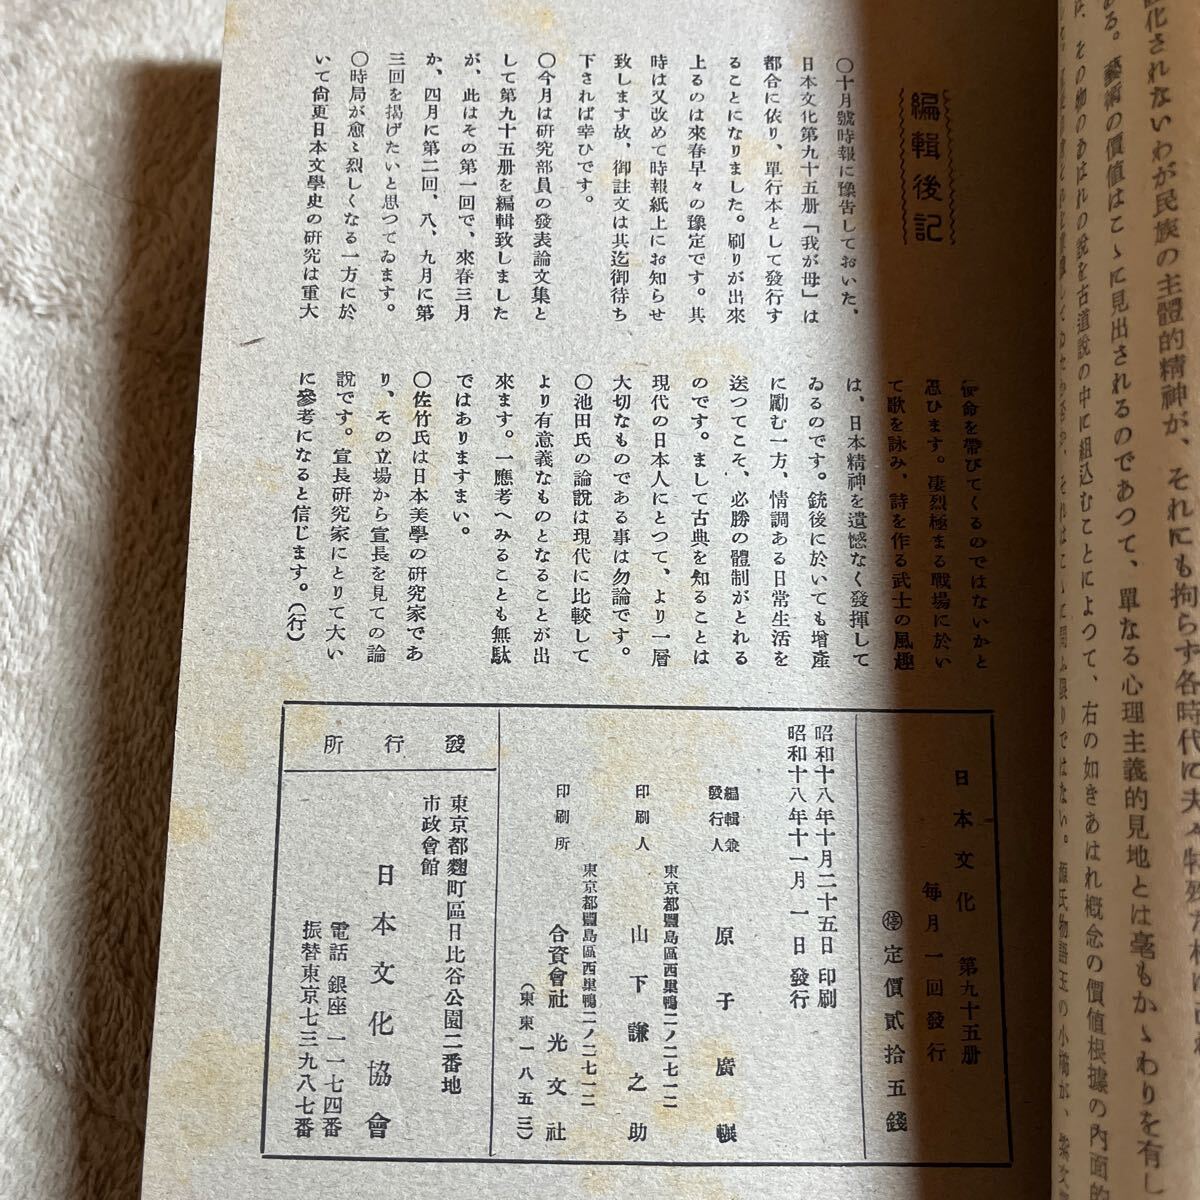 化されないわが民族の主體的精神が、それにも拘らず各時代に夫々特殊な
ある。藝術の價値はこゝに見出されるのであつて、單なる心理主義的見地とは毫もかゝわりを有し
その物のあはれの說を古道說の中に組込むことによつて、右の如きあはれ概念の價値根據の內面的
編輯後記
〇十月號時報に豫告しておいた、
日本文化第九十五册「我が母」は
都合に依り、單行本として發行す
ることになりました。刷りが出來
上るのは來春早々の豫定です。其
時は又改めて時報紙上にお知らせ
致します故、御註文は其迄御待ち
下されば幸ひです。
〇今月は硏究部員の發表論文集と
して第九十五册を編輯致しました
が、此はその第一回で、來春三月
か、四月に第二回、八、九月に第
三回を揭げたいと思つてゐます。
〇時局が愈〻烈しくなる一方に於
いて尙更日本文學史の硏究は重大
使命を帶びてくるのではないかと
思ひます。凄烈極まる戰場に於い
て歌を詠み、詩を作る武士の風趣
は、日本精神を遺憾なく發揮して
ゐるのです。銃後に於いても增產
に勵む一方、情調ある日常生活を
送つてこそ、必勝の體制がとれる
のです。まして古典を知ることは
現代の日本人にとつて、より一層
大切なものである事は勿論です。
〇池田氏の論說は現代に比較して
より有意義なものとなることが出
來ます。一應考へみることも無駄
ではありますまい。
〇佐竹氏は日本美學の硏究家であ
り、その立場から宣長を見ての論
說です。宣長硏究家にとりて大い
に參考になると信じます。(行)
日本文化 第九十五册
每月一回發行
㊡定價貳拾五錢
昭和十八年十月二十五日印刷
昭和十八年十一月一日發行
編輯兼
發行人 原子廣輾
東京都豐島區西巢鴨二ノ二七一二
印刷人 山下謙之助
東京都豐島區西巢鴨二ノ二七一二
印刷所 合資會社 光文社
(東東一八五三)
發行所
東京都麴町區日比谷公園二番地
市政會館
日本文化協會
電話 銀座 一一七四番
振替東京七三九八七番